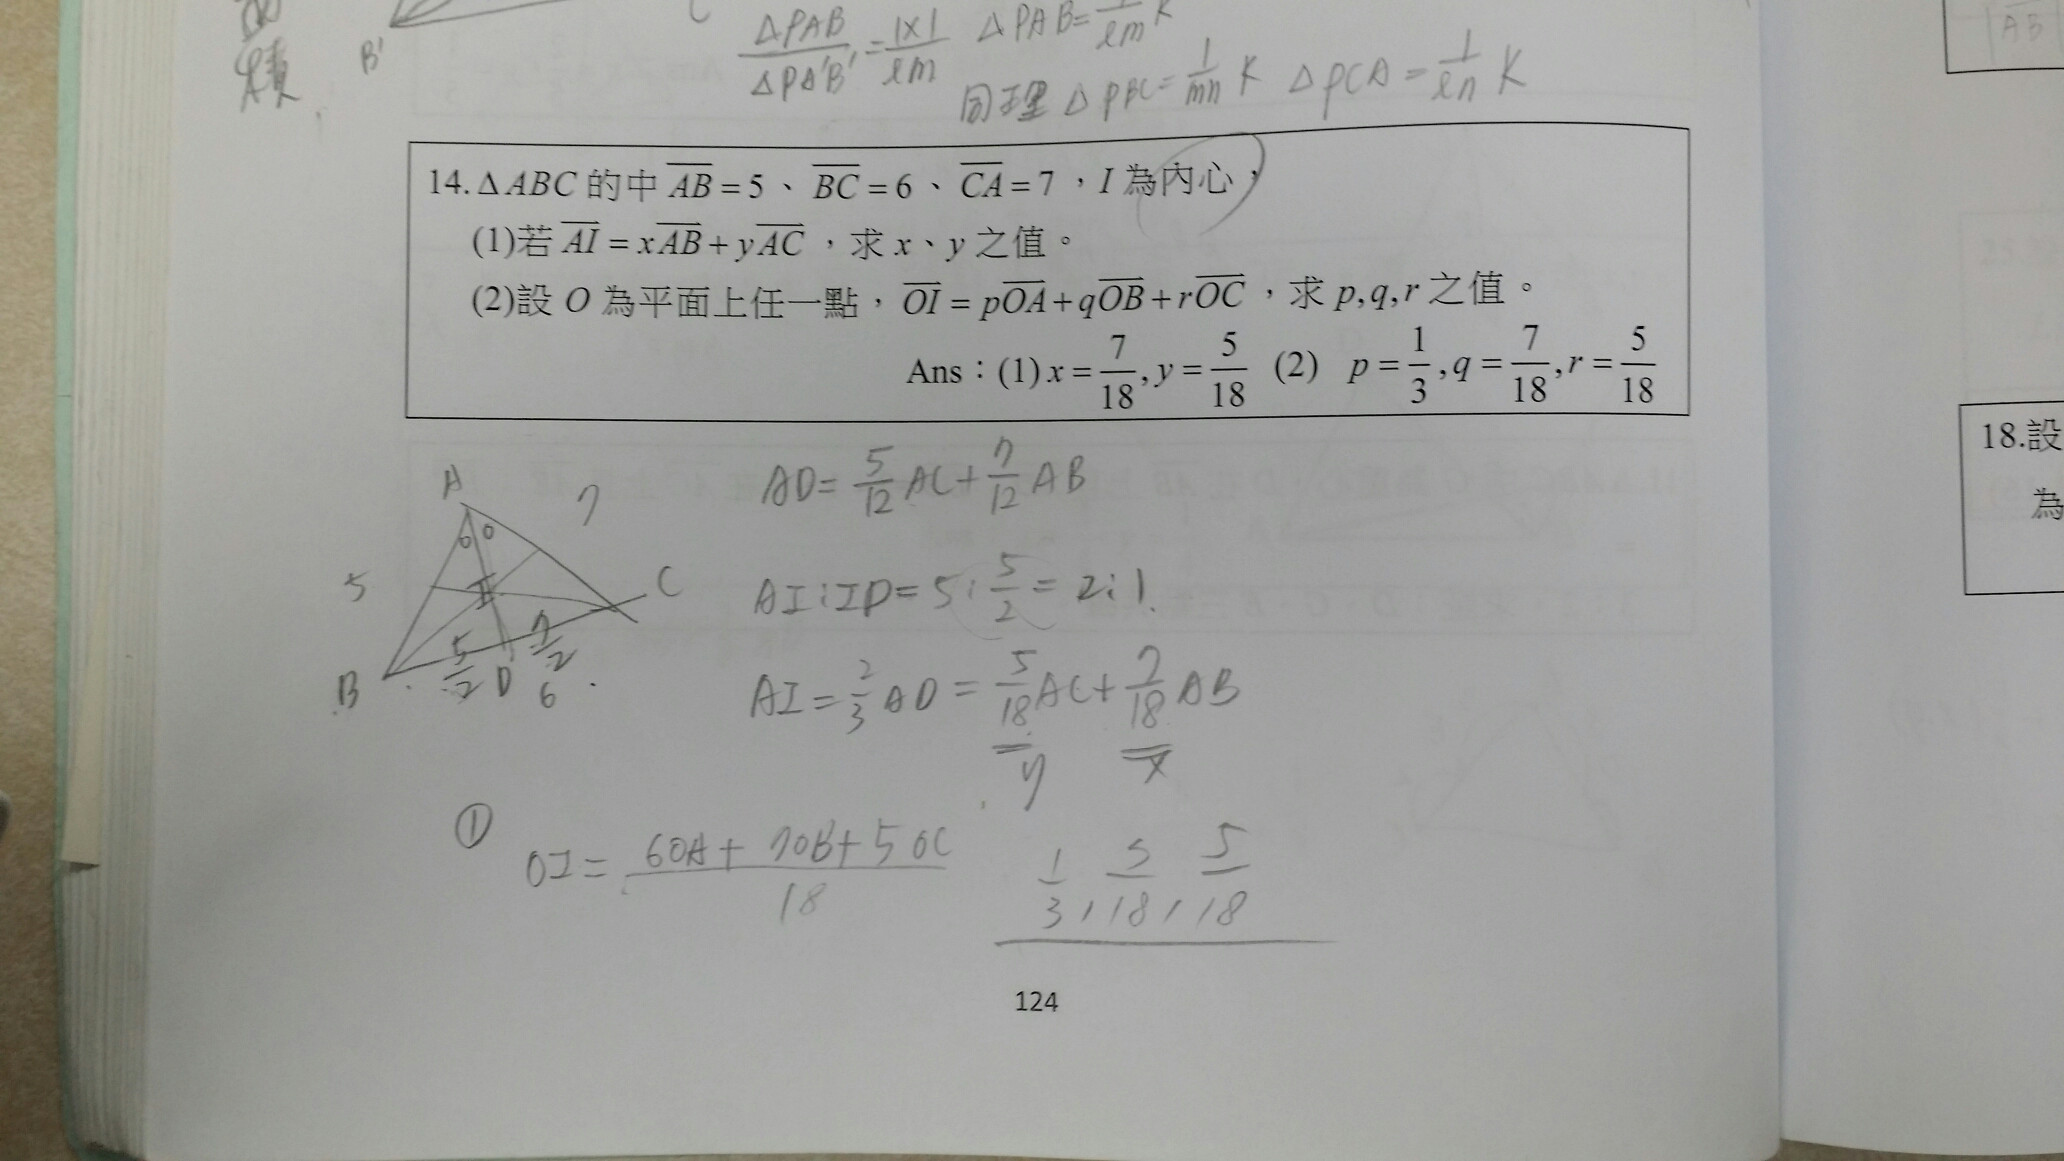 C
B'
ΔPAB/ΔPA'B' = 1×1/lm ΔPAB=1/lm K
同理 ΔPBC=1/mn K ΔPCA=1/ln K
14. ΔABC 的中 AB=5、BC=6、CA=7，I 為內心，
(1)若 AI=xAB+yAC，求 x、y 之值。
(2)設 O 為平面上任一點，OI=pOA+qOB+rOC，求 p,q,r 之值。
Ans：(1) x=7/18, y=5/18 (2) p=1/3, q=7/18, r=5/18
AD=5/12 AC+7/12 AB
A 7
5 I C
B 5/2 D 7/2 6
AI:ID=5:5/2=2:1
AI=2/3 AD=5/18 AC+7/18 AB
y x
① OI=6OA+7OB+5OC/18
1/3, 5/18, 5/18
124
AB
18.設
為